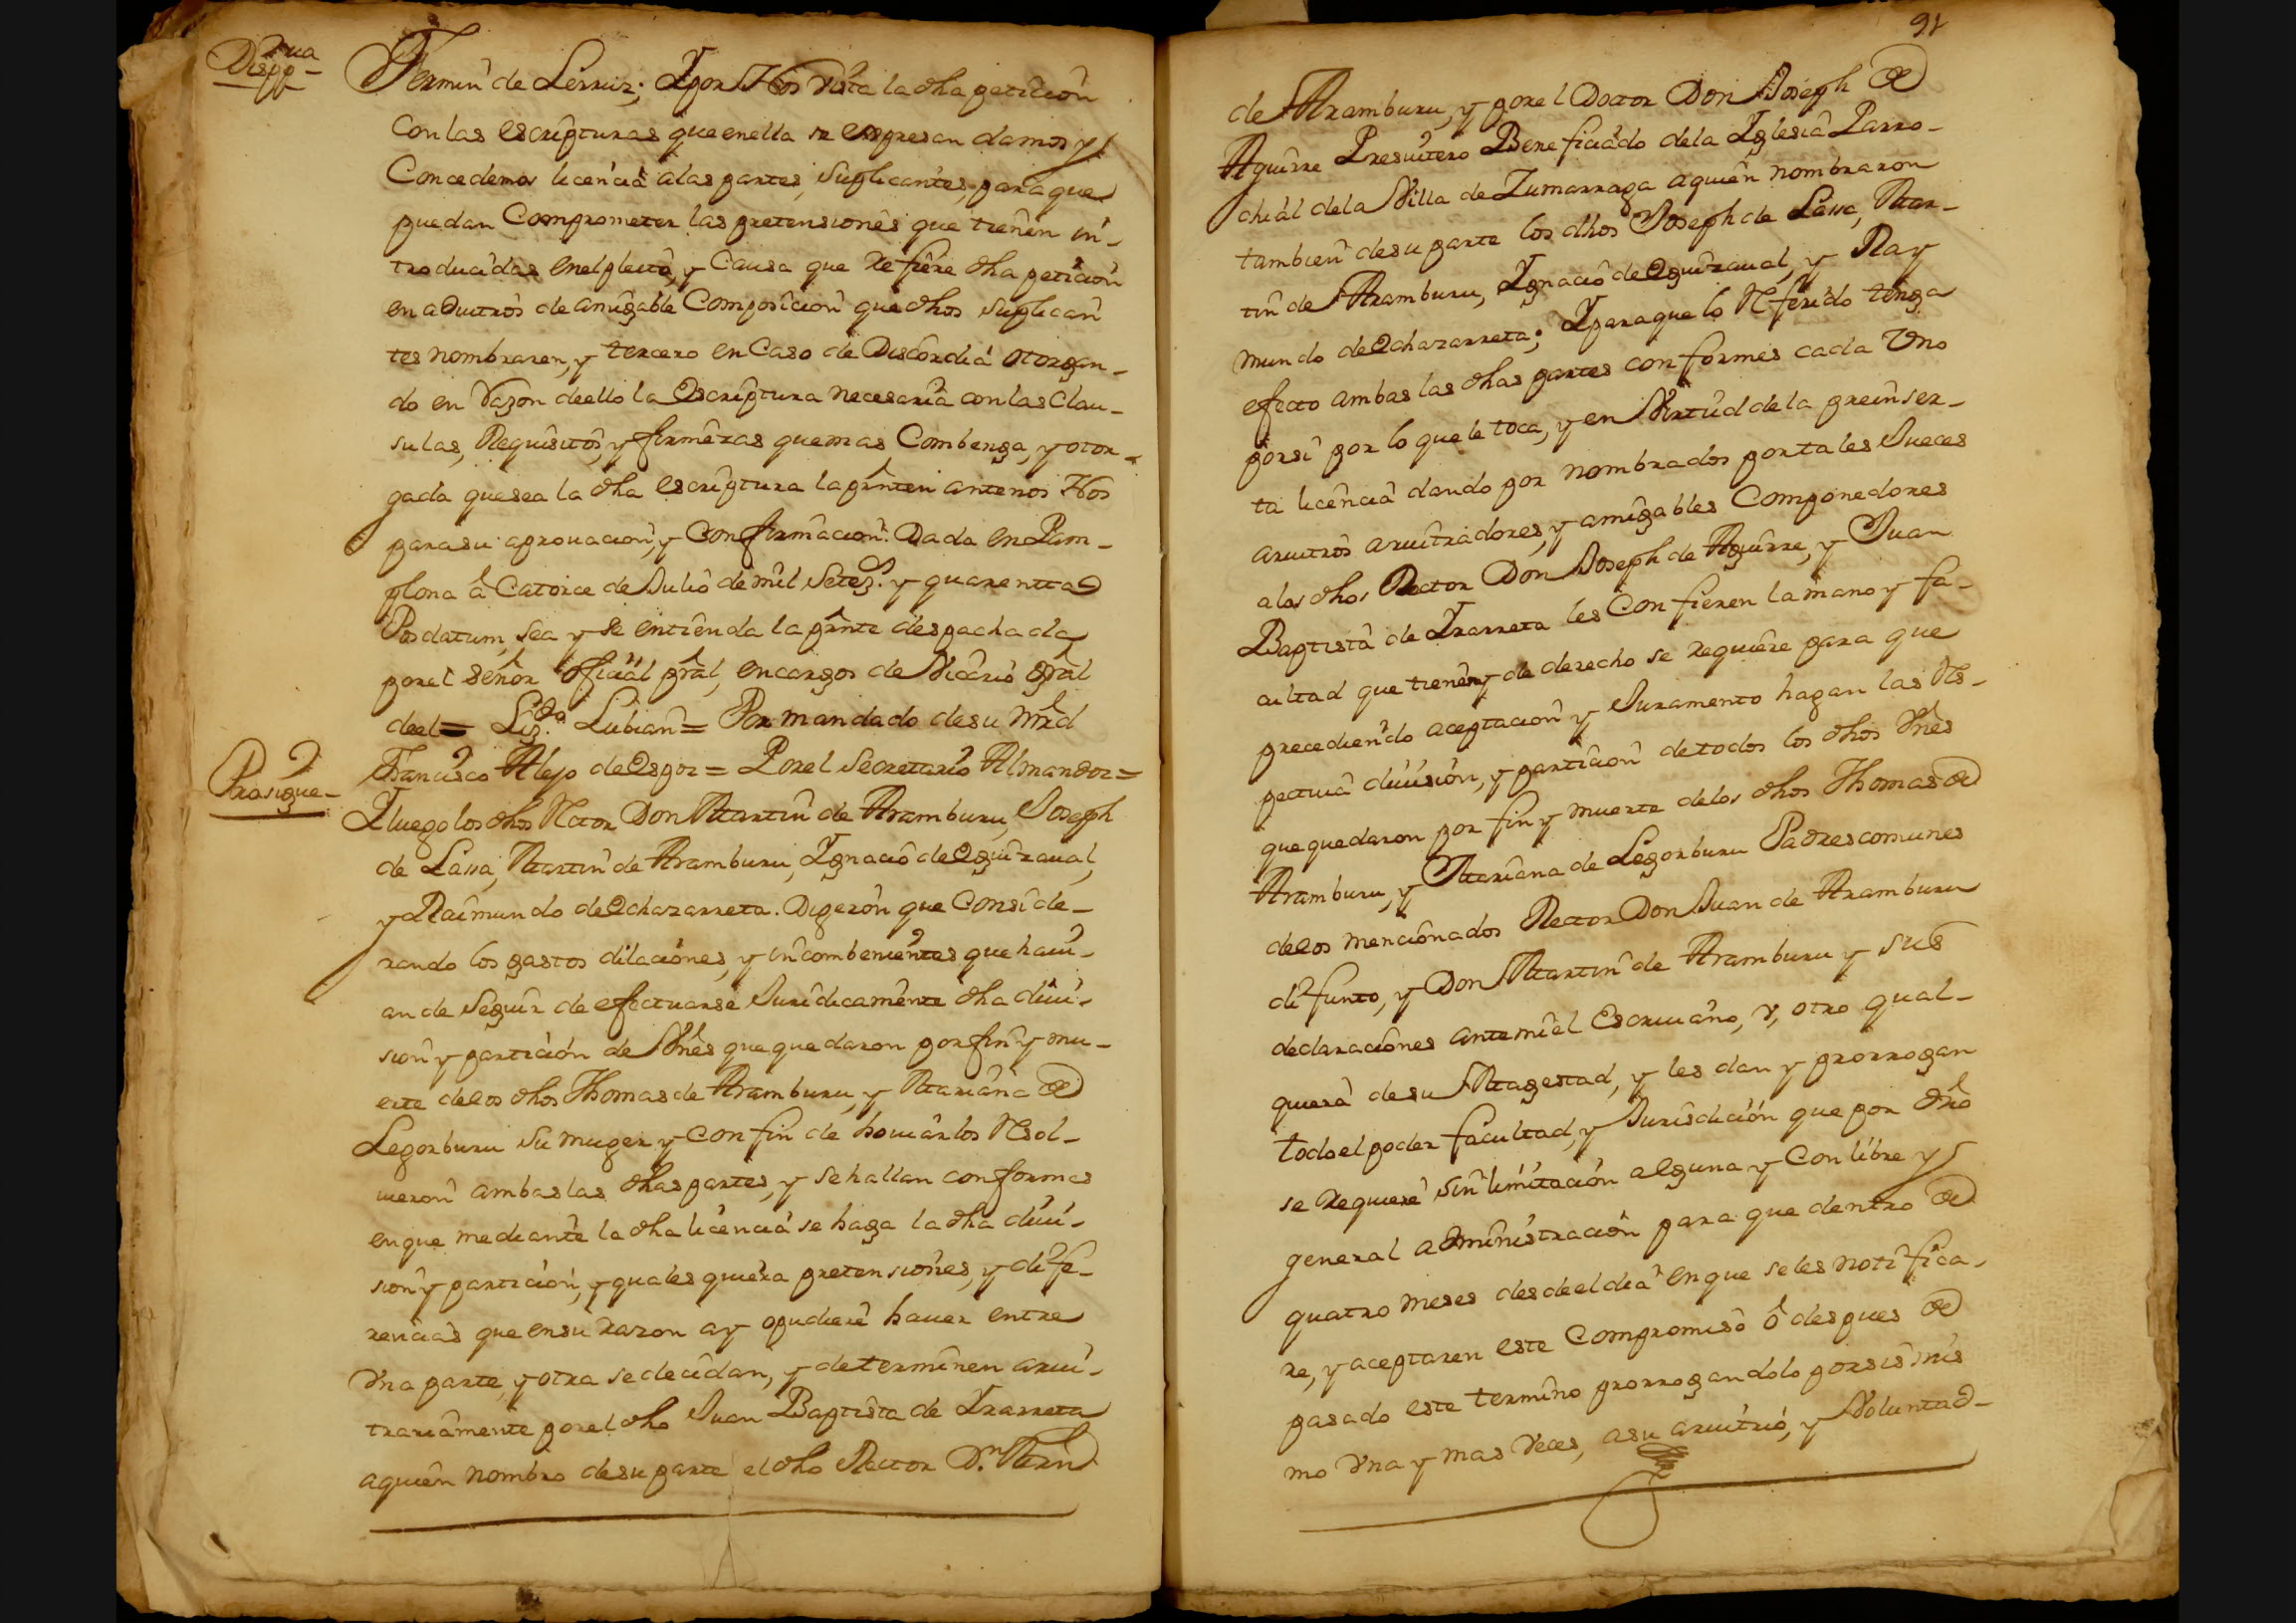 Dispp.ua
Fermin de Lerruz; Y por Nos vista la dha peticion
con las escripturas que en ella se expresan damos y
Concedemos licencia a las partes, suplicantes, para que
puedan Comprometer las pretensiones que tienen in-
troducidas en el pleito, y Causa que refiere dha peticion
en advitros de amigable Composicion que dhos suplican
tes nombraren, y tercero en Caso de Discordia otorgan-
do en razon de ello la Escriptura necesaria con las Clau-
sulas, Requisitos, y firmezas que mas Combenga, y otor-
gada que sea la dha escriptura la prnten ante nos Nos
para su aprouacion, y Confirmacion. Dada en Pam-
plona â Catorce de Julio de mil Setez.s y quarenta
Posdatum, sea y se entienda la prnte despachada
por el señor oficial pral, en cargos de Vicario gral
de el = Liz.do Lubian = Por mandado de su mrd
Prosigue-
Francisco Alejo de Espoz = Por el Secretario Almandoz =
Y luego los dhos Retor Don Martin de Aramburu, Joseph
de Lassa, Martin de Aramburu, Ygnacio de Eguizaual,
y Raimundo de Echazarreta. Digeron que Conside-
rando los gastos dilaciones, y incombenientes que haui-
an de Seguir de efectuarse Juridicamente dha diui-
sion y particion de Vnes que quedaron por fin y mu-
erte de los dhos Thomas de Aramburu, y Mariana de
Legorburu su muger y con fin de houiarlos Resol-
uieron ambas las dhas partes, y se hallan conformes
en que mediante la dha licencia se haga la dha diui-
sion y particion, y quales quiera pretensiones, y dife-
rencias que en su razon ay o pudiere hauer entre
Vna parte, y otra se decidan, y determinen arui-
trariamente por el dho Juan Baptista de Yrarreta
a quien nombro de su parte el dho Rector D.n Mrn
91
de Aramburu, y por el Doctor Don Joseph de
Aguirre Presuitero Beneficiado de la Yglesia Parro-
chial de la Villa de Zumarraga a quien nombraron
tambien de su parte los dhos Joseph de Lassa, Mar-
tin de Aramburu, Ygnacio de Eguizaual, y Ray
mundo de Echazarreta; Y para que lo Referido tenga
efecto ambas las dhas partes conformes cada Vno
por si por lo que le toca, y en Virtud de la preinser-
ta licencia dando por nombrados por tales Jueces
aruitros aruitradores, y amigables Componedores
a los dhos Doctor Don Joseph de Aguirre, y Juan
Baptista de Yrarreta les Confieren la mano y fa-
cultad que tienen y de derecho se requiere para que
precediendo aceptacion y Juramento hagan las Res-
pectiua diuision, y particion de todos los dhos Vnes
que quedaron por fin y muerte de los dhos Thomas de
Aramburu, y Mariana de Legorburu Padres comunes
de los mencionados Rector Don Juan de Aramburu
difunto, y Don Martin de Aramburu y sus
declaraciones ante mi el Escriuano, v, otro qual-
quiera de su Magestad, y les dan y prorrogan
todo el poder facultad, y Jurisdicion que por dro
se requiere sin limitacion alguna y Con libre y
general administracion para que dentro de
quatro meses desde el dia en que se les notifica-
re, y aceptaren este Compromiso ô despues de
pasado este termino prorrogandolo por si mis
mo Vna y mas Veces, a su aruitrio, y Voluntad-